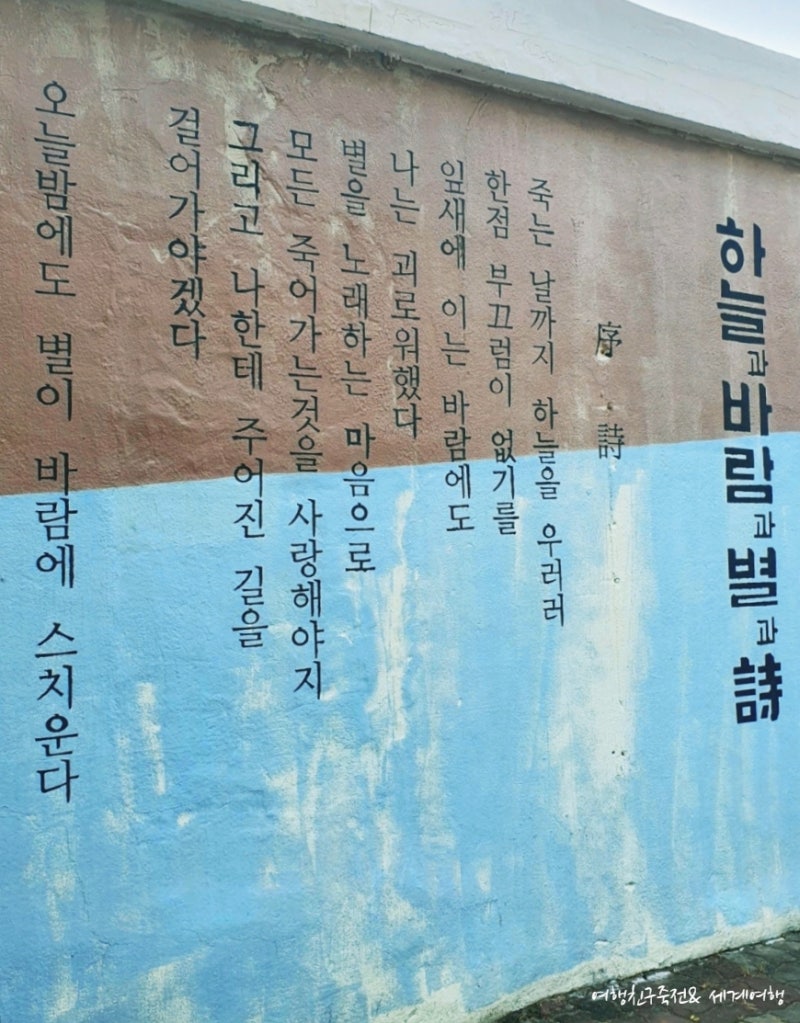 하늘과 바람과 별과 詩
序 詩
죽는 날까지 하늘을 우러러
한점 부끄럼이 없기를
잎새에 이는 바람에도
나는 괴로워했다
별을 노래하는 마음으로
모든 죽어가는것을 사랑해야지
그리고 나한테 주어진 길을
걸어가야겠다
오늘밤에도 별이 바람에 스치운다
여행친구죽전& 세계여행